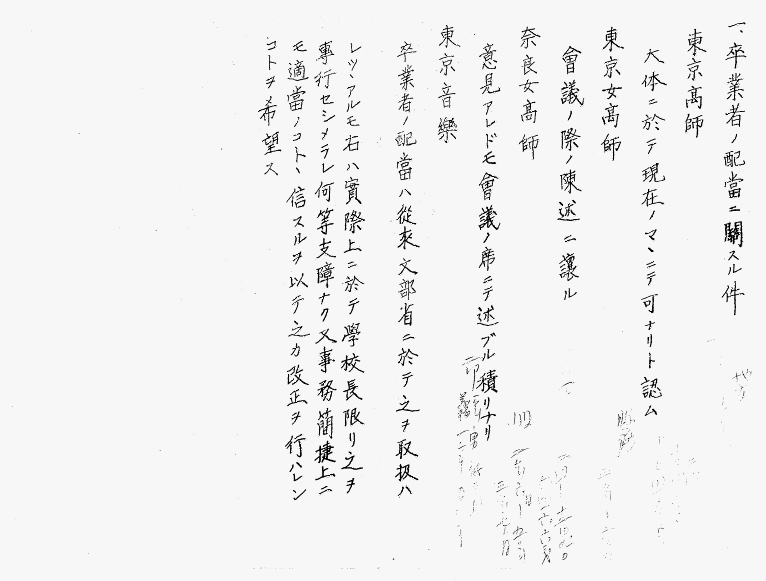 一、卒業者ノ配當ニ關スル件
東京高師
大体ニ於テ現在ノマヽニテ可ナリト認ム
東京女高師
會議ノ際ノ陳述ニ讓ル
奈良女高師
意見アレドモ會議ノ席ニテ述ブル積リナリ
東京音樂
卒業者ノ配當ハ從來文部省ニ於テ之ヲ取扱ハ
レツヽアルモ右ハ實際上ニ於テ學校長限リ之ヲ
專行セシメラレ何等支障ナク又事務簡捷上ニ
モ適當ノコトヽ信スルヲ以テ之カ改正ヲ行ハレン
コトヲ希望ス